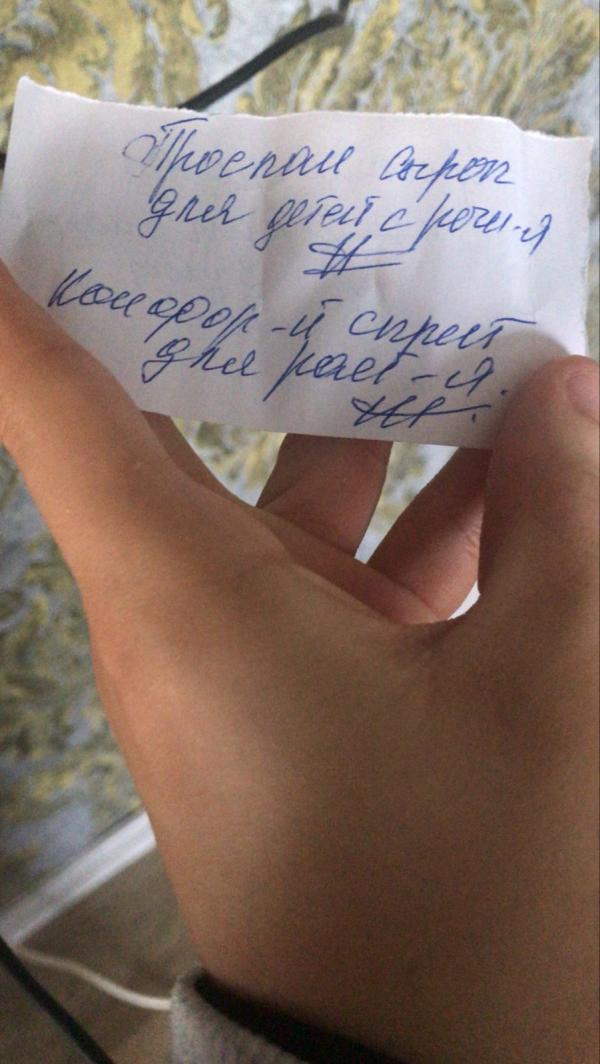 Проспан сироп
для детей с рожд-я
№
Камфор-й спирт
для раст-я.
№.